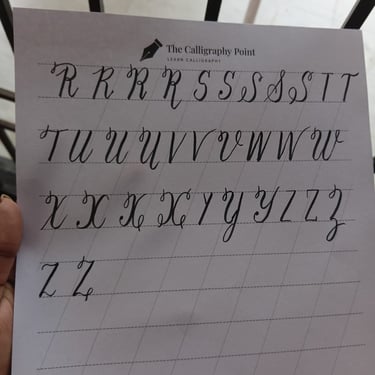 The Calligraphy Point
LEARN CALLIGRAPHY
R R R R S S S S S T T
T U U U V V V W W W
X X X X Y Y Y Z Z Z
Z Z